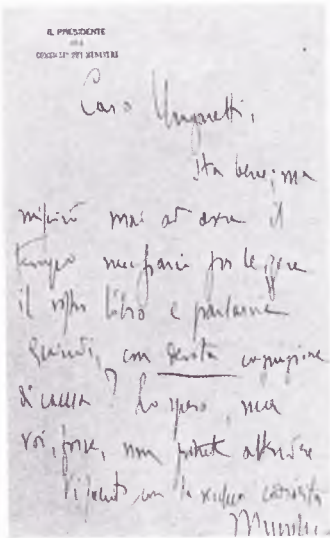 IL PRESIDENTE
DEL
CONSIGLIO DEI MINISTRI
Caro Ungaretti,
Sta bene; ma
mai ad avere il
tempo necessario per leggere
il vostro libro e parlarne
quindi, con cognizione
di causa? Lo spero, ma
voi, forse, non potete attendere
con la
Mussolini